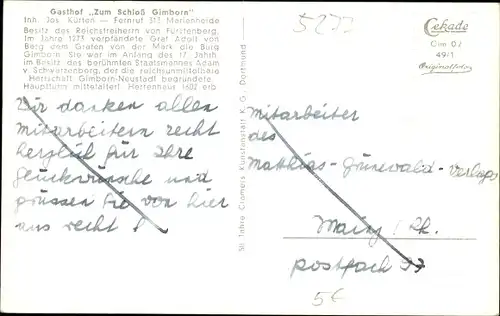 Gasthof „Zum Schloß Gimborn"
Inh. Jos. Kürten — Fernruf 313 Marienheide
Besitz des Reichsfreiherrn von Fürstenberg.
Im Jahre 1273 verpfändete Graf Adolf von
Berg dem Grafen von der Mark die Burg
Gimborn. Sie war im Anfang des 17. Jahrh.
im Besitz des berühmten Staatsmannes Adam
v. Schwarzenberg, der die reichsunmittelbare
Herrschaft Gimborn-Neustadt begründete.
Hauptturm mittelalterl. Herrenhaus 1602 erb.
Wir danken allen
Mitarbeitern recht
herzlich für Ihre
Glückwünsche und
grüssen Sie von hier
aus recht
50 Jahre Cramers Kunstanstalt K.G., Dortmund
5277
Cekade
Gim 07
49/1
Originalfoto
Mitarbeiter
des
Matthias-Grünewald-Verlages
Mainz / Rh.
Postfach 37
5€